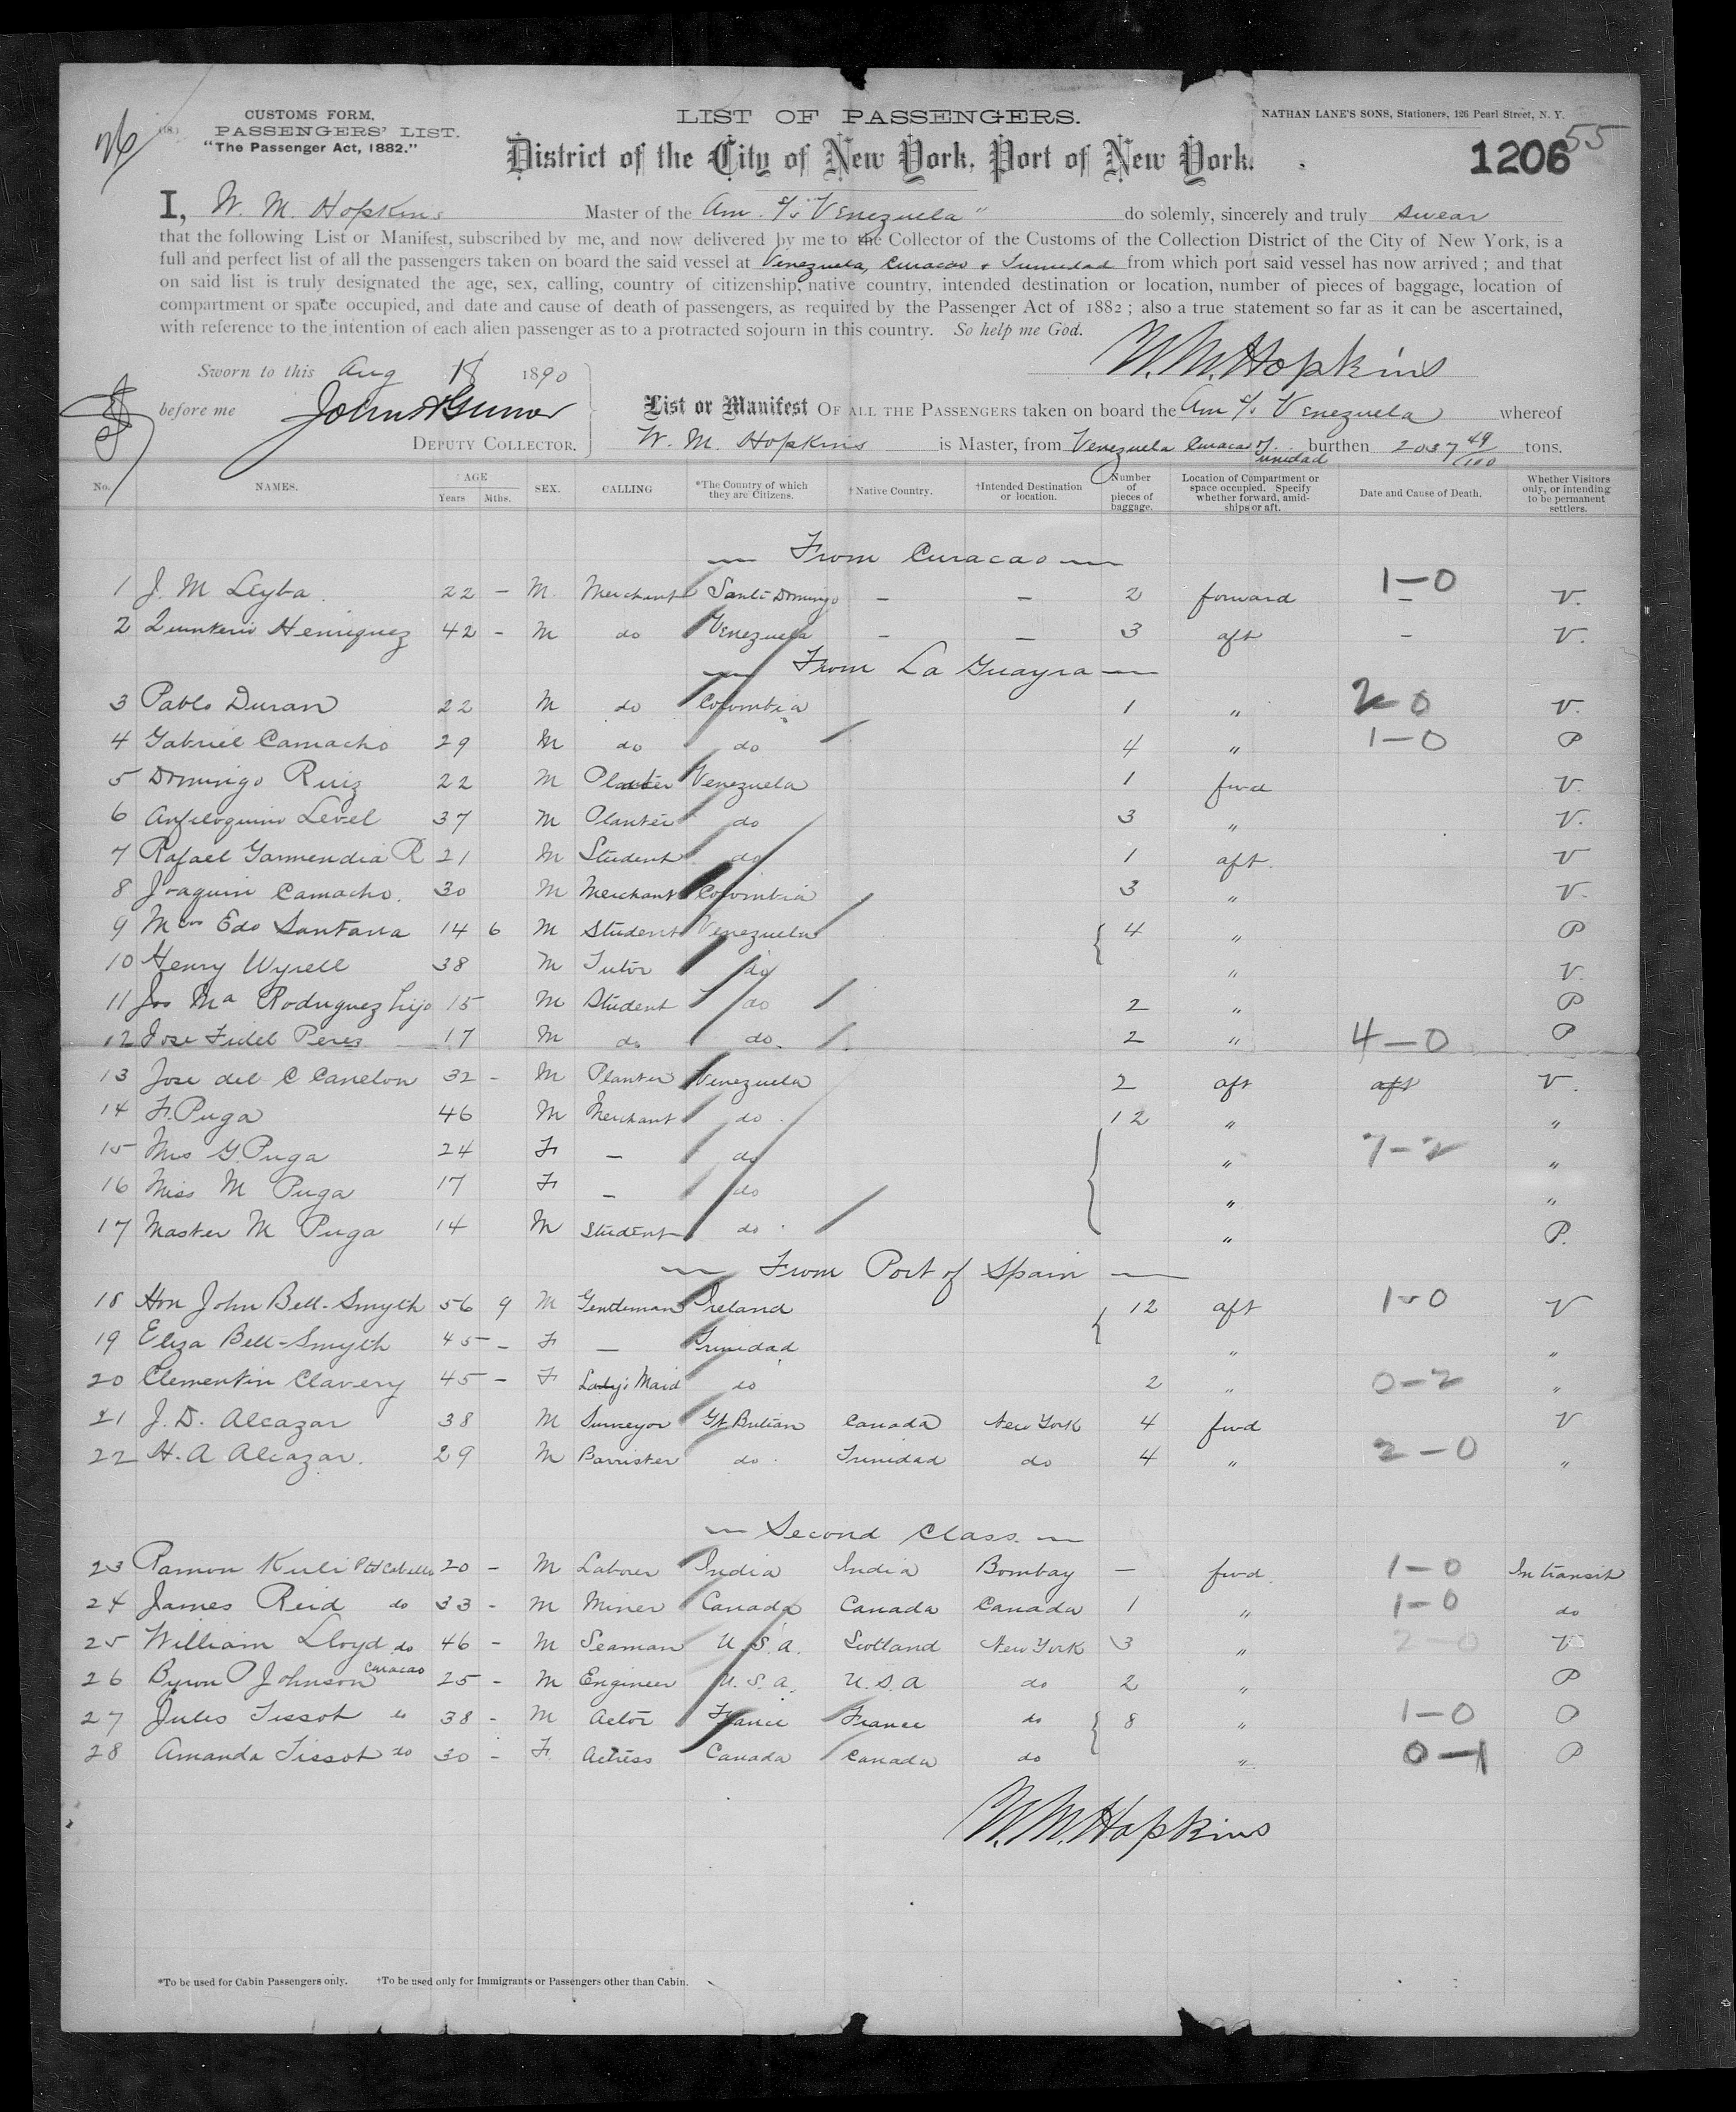 CUSTOMS FORM,
PASSENGERS' LIST.
"The Passenger Act, 1882."
LIST OF PASSENGERS.
NATHAN LANE'S SONS, Stationers, 126 Pearl Street, N. Y.
District of the City of New York, Port of New York.
1206
55
I, W. M. Hopkins Master of the Am. S/s "Venezuela" do solemly, sincerely and truly swear
that the following List or Manifest, subscribed by me, and now delivered by me to the Collector of the Customs of the Collection District of the City of New York, is a
full and perfect list of all the passengers taken on board the said vessel at Venezuela, Curacao & Trinidad from which port said vessel has now arrived; and that
on said list is truly designated the age, sex, calling, country of citizenship, native country, intended destination or location, number of pieces of baggage, location of
compartment or space occupied, and date and cause of death of passengers, as required by the Passenger Act of 1882; also a true statement so far as it can be ascertained,
with reference to the intention of each alien passenger as to a protracted sojourn in this country. So help me God.
W. M. Hopkins
Sworn to this Aug 18 1890
before me
DEPUTY COLLECTOR.
List or Manifest OF ALL THE PASSENGERS taken on board the Am S/s Venezuela whereof
W. M. Hopkins is Master, from Venezuela Curacao burthen 2037 49/100 tons.
No. NAMES. AGE Years Mths. SEX. CALLING *The Country of which they are Citizens. †Native Country. †Intended Destination or location. Number of pieces of baggage. Location of Compartment or space occupied. Specify whether forward, amidships or aft. Date and Cause of Death. Whether Visitors only, or intending to be permanent settlers.
— From Curacao —
1 J. M Leyba 22 - M. Merchant Santo Domingo — — 2 forward 1-0 — V.
2 Henriquez 42 - M do Venezuela — — 3 aft — V.
— From La Guayra —
3 Pablo Duran 22 M do Colombia 1 " 2-0 V.
4 Gabriel Camacho 29 M do do 4 " 1-0 P
5 Domingo Ruiz 22 M Planter Venezuela 1 fwd V.
6 Anfiloquino Level 37 M Planter do 3 " V.
7 Rafael Garmendia R 21 M Student do 1 aft. V
8 Joaquin Camacho. 30 M Merchant Colombia 3 " V.
9 Edo Santana 14 6 M Student Venezuela 4 " P
10 Henry Wyrell 38 M Tutor do " V.
11 Jos Ma Rodriguez hijo 15 M Student do 2 " P
12 Jose Fidel Peres 17 M do do. 2 " 4-0 P
13 Jose del C Canelon 32 - M Planter Venezuela 2 aft aft V.
14 F. Puga 46 M Merchant do 12 " "
15 Mrs G. Puga 24 F — do " 7-2 "
16 Miss M Puga 17 F — do " "
17 Master M Puga 14 M Student do " P.
— From Port of Spain —
18 Hon John Bell-Smyth 56 9 M Gentleman Ireland 12 aft 1-0 V
19 Eliza Bell-Smyth 45 - F — Trinidad " "
20 Clementin Clavery 45 - F Lady's Maid do 2 " 0-2 "
21 J. D. Alcazar 38 M Surveyor Gt. Britian Canada New York 4 fwd V
22 H. A Alcazar. 29 M Barrister do Trinidad do 4 " 2-0 "
— Second Class. —
23 Ramon Kuli Pto Cabello 20 - M Laborer India India Bombay — fwd. 1-0 In transit
24 James Reid do 33 - M Miner Canada Canada Canada 1 " 1-0 do
25 William Lloyd do 46 - M Seaman U.S.a. Scotland New York 3 " 2-0 V
26 Byron P Johnson Curacao 25 - M Engineer U.S.a. U.S.A do 2 " P
27 Jules Tissot do 38 - M Actor France France do 8 " 1-0 P
28 Amanda Tissot do 30 - F. Actress Canada Canada do " 0-1 P
W. M. Hopkins
*To be used for Cabin Passengers only. †To be used only for Immigrants or Passengers other than Cabin.